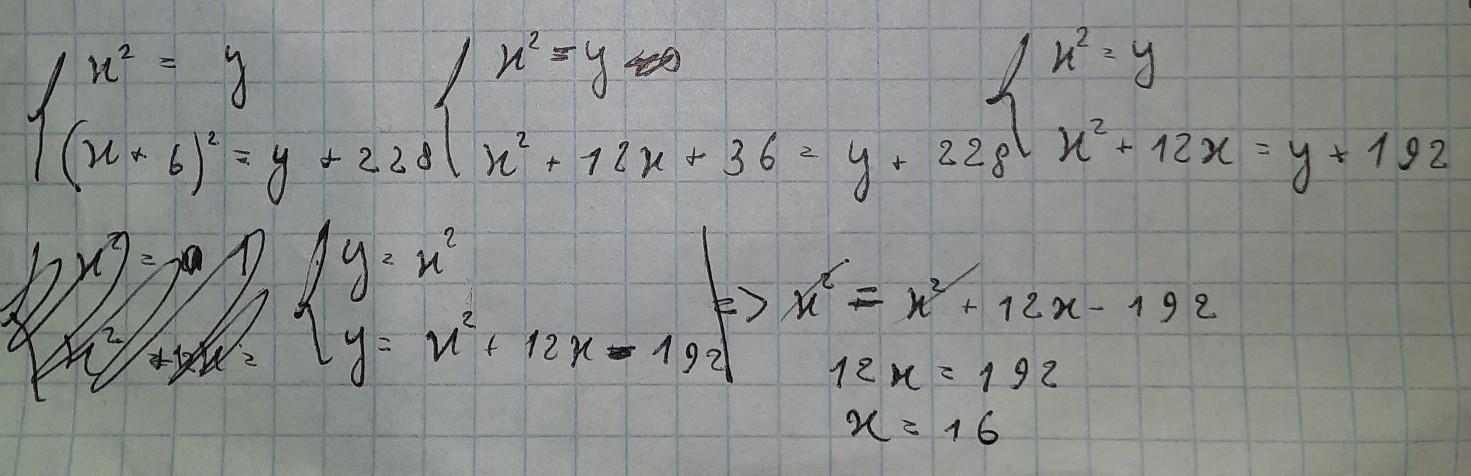 { x² = y { x² = y { x² = y
(x + 6)² = y + 228 x² + 12x + 36 = y + 228 x² + 12x = y + 192
{ y = x²
y = x² + 12x - 192 | => x² = x² + 12x - 192
12x = 192
x = 16